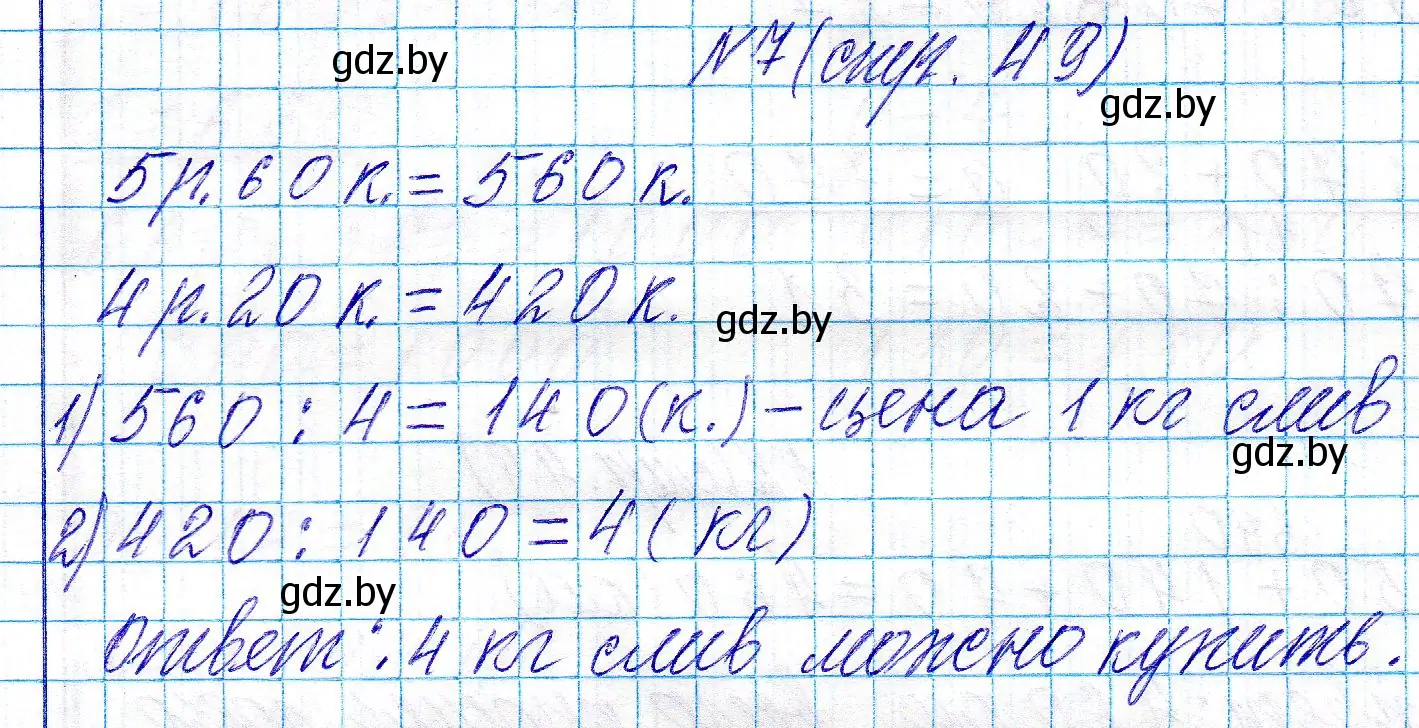 gdz.by
№7 (стр. 49)
gdz.by
5 р. 60 к. = 560 к.
4 р. 20 к. = 420 к.
gdz.by
1) 560 : 4 = 140 (к.) – цена 1 кг слив
gdz.by
2) 420 : 140 = 4 (кг)
gdz.by
ответ: 4 кг слив можно купить.